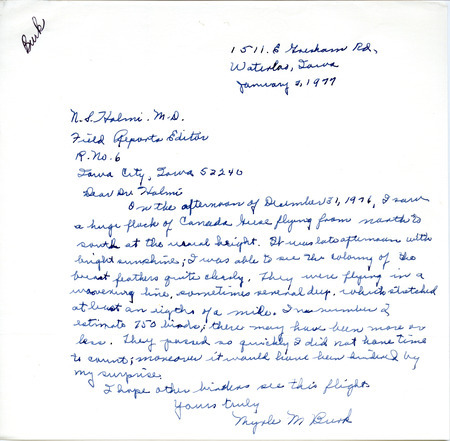 Burk
1511 E Gresham Rd.
Waterloo, Iowa
January 2, 1977
N.S. Halmi. M.D.
Field Reports Editor
R. No. 6
Iowa City, Iowa 52240
Dear Dr Halmi
On the afternoon of December 31, 1976, I saw
a huge flock of Canada Geese flying from north to
south at the usual height. It was late afternoon with
bright sunshine; I was able to see the colony of the
breast feathers quite clearly. They were flying in a
wavering line, sometimes several deep, which stretched
at least an eighth of a mile. I
estimate 750 birds; there may have been more or
less. They passed so quickly I did not have time
to count; moreover it would have been hindered by
my surprise.
I hope other birders see this flight.
Yours truly
Myrle M Burk